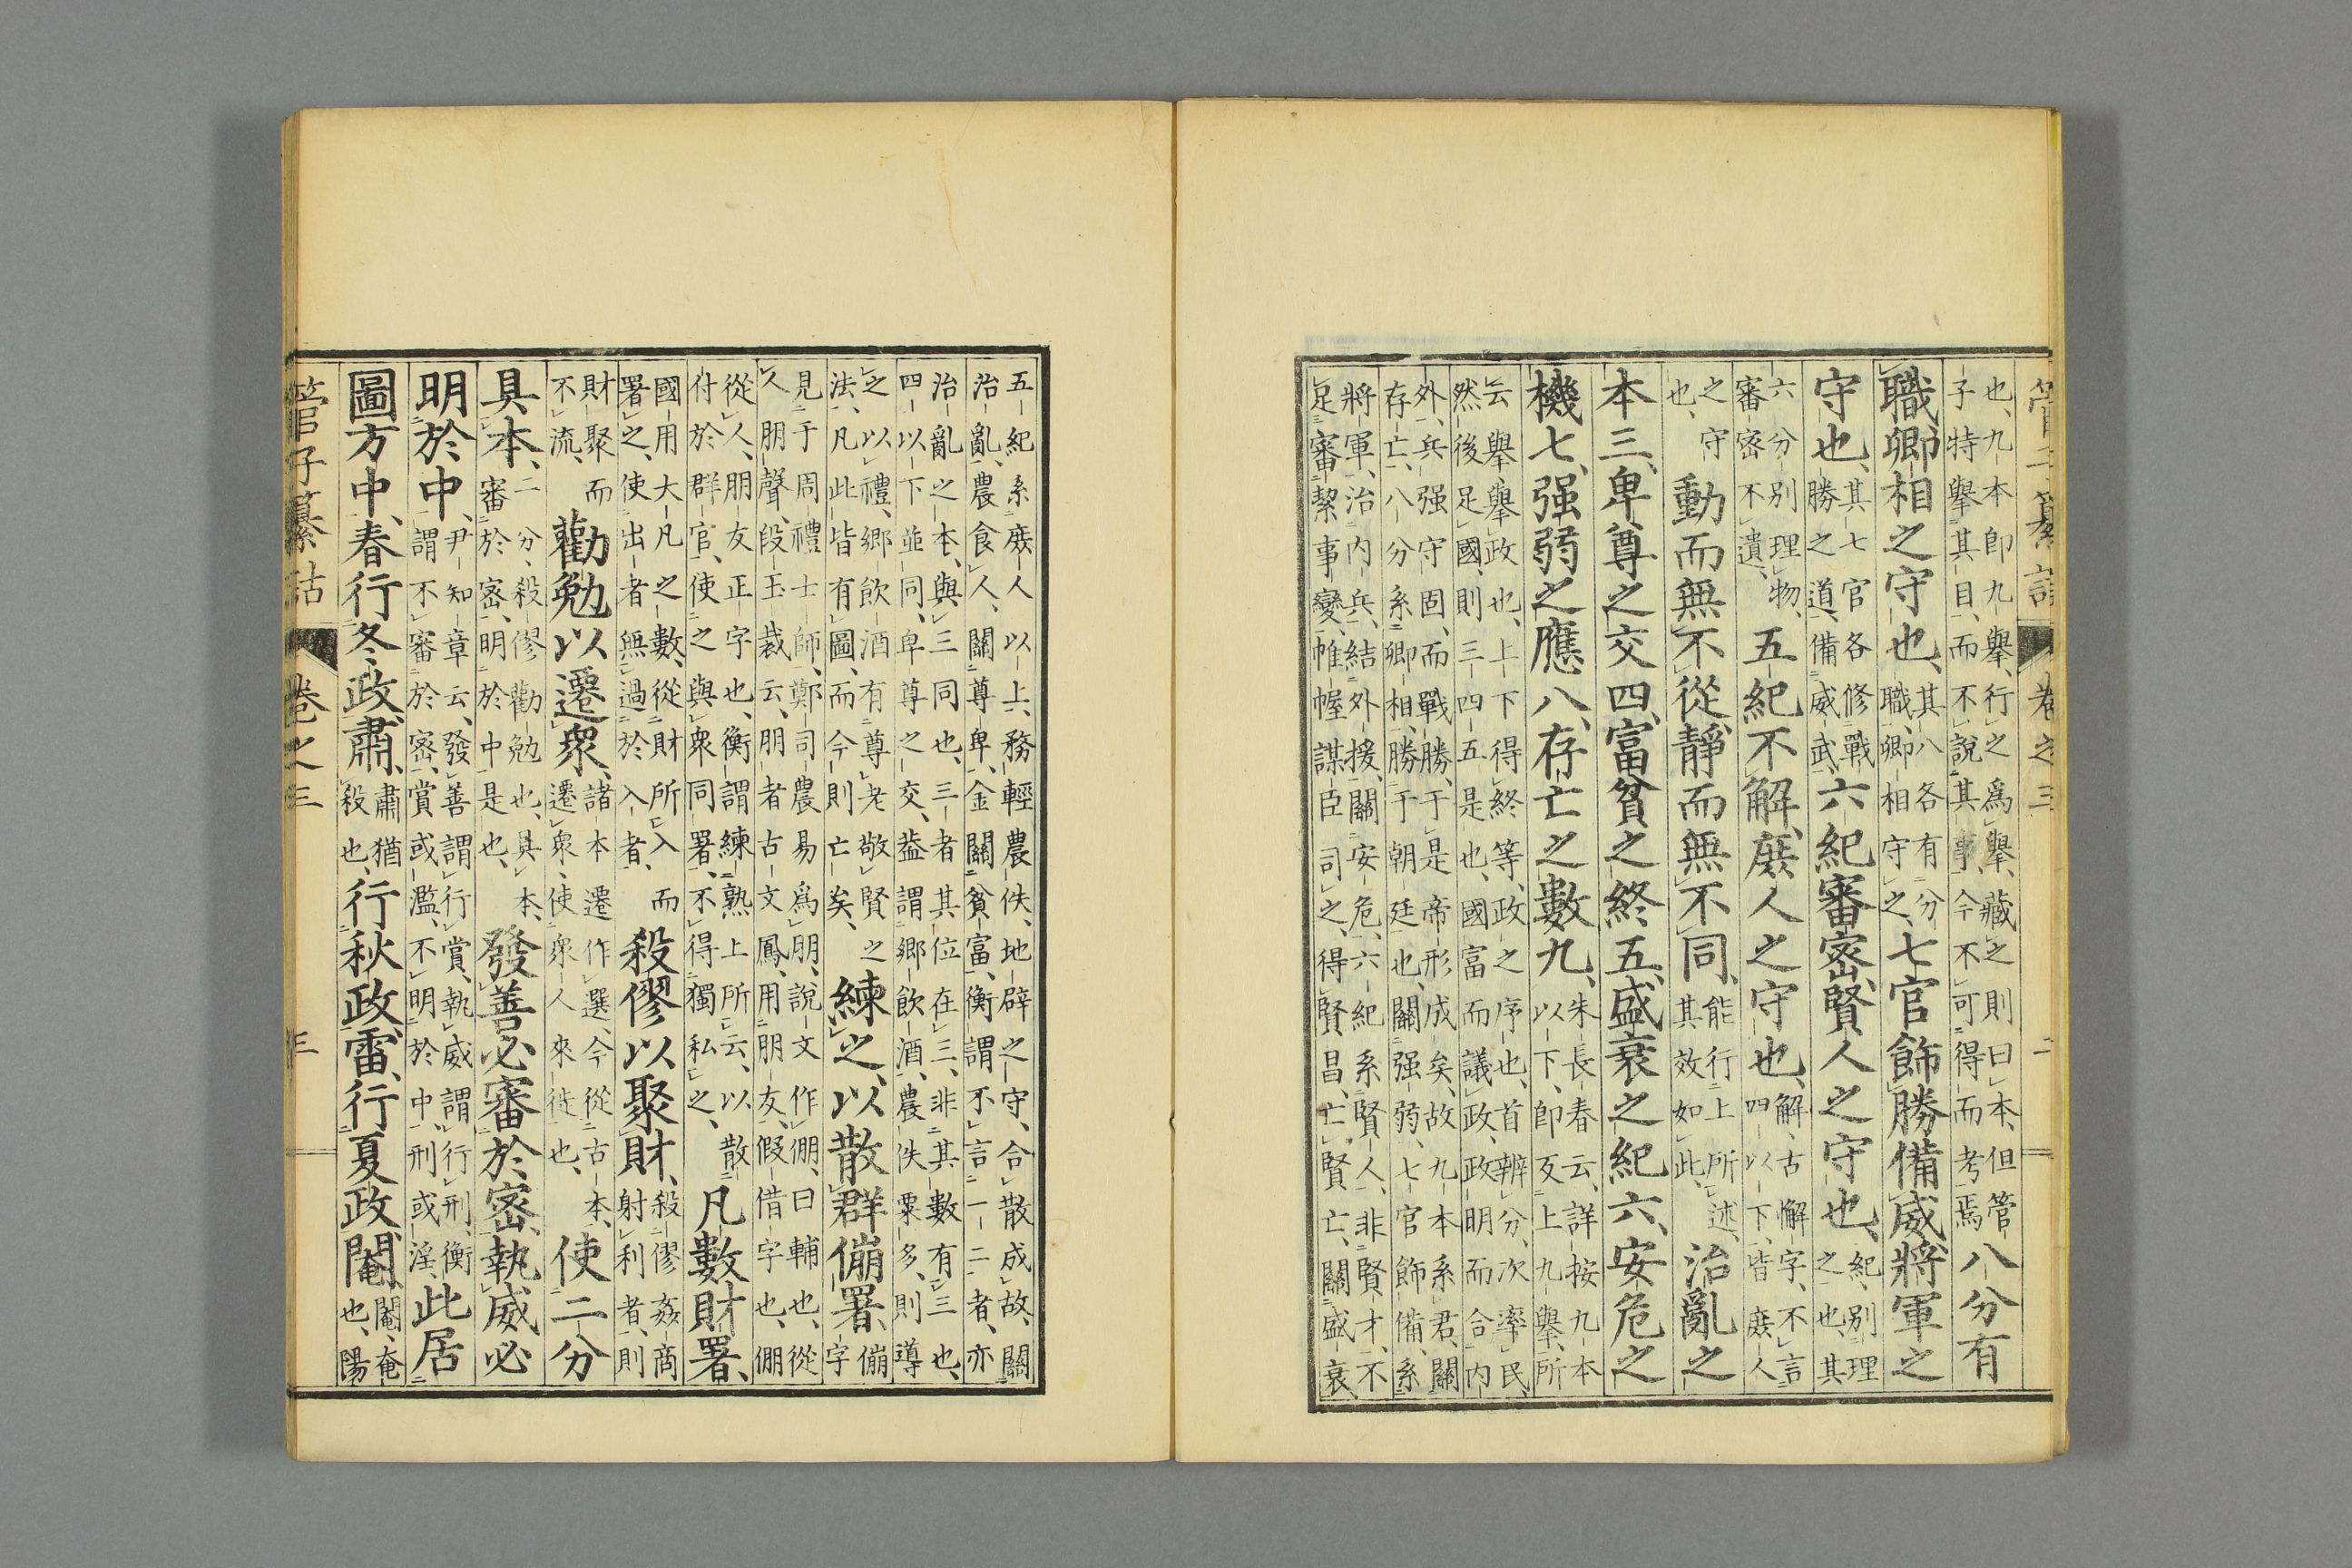 管子纂詁 卷之三 二
也、九本卽九擧、行之爲擧、藏之則曰本、但管
子特擧其目、而不說其事、今不可得而考焉 八分有
職、卿相之守也、其八各有分
職、卿相守之、 七官飾勝備威、將軍之
守也、其七官各修戰
勝之道、備威武、 六紀審密、賢人之守也、紀、別理
之也、其
六分別理物、
審密不遺、 五紀不解、庶人之守也、解、古懈字、不言
四以下、皆庶人
之守
也、 動而無不從、靜而無不同、能行上所述、
其效如此、 治亂之
本三、卑尊之交四、富貧之終五、盛衰之紀六、安危之
機七、强弱之應八、存亡之數九、朱長春云、詳按九本
以下、卽反上九擧、所
云擧、擧政也、上下得終等、政之序也、首辨分、次率民、
然後足國、則三四五是也、國富而議政、政明而合內
外、兵强守固、而戰勝、于是帝形成矣、故九本系君、關
存亡、八分系卿相、勝于朝廷也、關强弱、七官飾備、系
將軍、治內兵、結外援、關安危、六紀系賢人、非賢才、不
足審絜事變、帷幄謀臣司之、得賢昌、亡賢亡、關盛衰、
五紀系庶人以上、務輕農佚、地辟之守、合散成故、關
治亂、農食人、關尊卑、金關貧富、衡謂不言一二者、亦
治亂之本、與三同也、三者其位在三、非其數有三也、
四以下並同、卑尊之交、蓋謂鄉飮酒、農佚粟多、則導
之以禮、鄉飮酒有尊老敬賢之
法、凡此皆有圖、而今則亡矣、 練之、以散群傰署、傰
字
見于周禮士師、鄭司農易爲朋、說文作倗、曰輔也、從
人朋聲、段玉裁云、朋者古文鳳、用朋友、假借字也、倗
從人、朋友正字也、衡謂練熟上所云、以散
付於群官、使之與衆同署、不得獨私之、 凡數財署、
國用大凡之數、從財所入而
署之、使出者無過於入者、 殺僇以聚財、殺僇姦商
射利者、則
財聚而
不流、 勸勉以遷衆、諸本遷作選、今從古本、
遷衆、使衆人來徙也、 使二分
具本、二分、殺僇勸勉也、具本、
審於密、明於中是也、 發善必審於密、執威必
明於中、尹知章云、發善謂行賞、執威謂行刑、衡
謂不審於密、賞或濫、不明於中、刑或淫、 此居
圖方中、春行冬政肅、肅猶
殺也、 行秋政雷、行夏政閹、閹、奄
也、陽
管子纂詁 卷之三 三